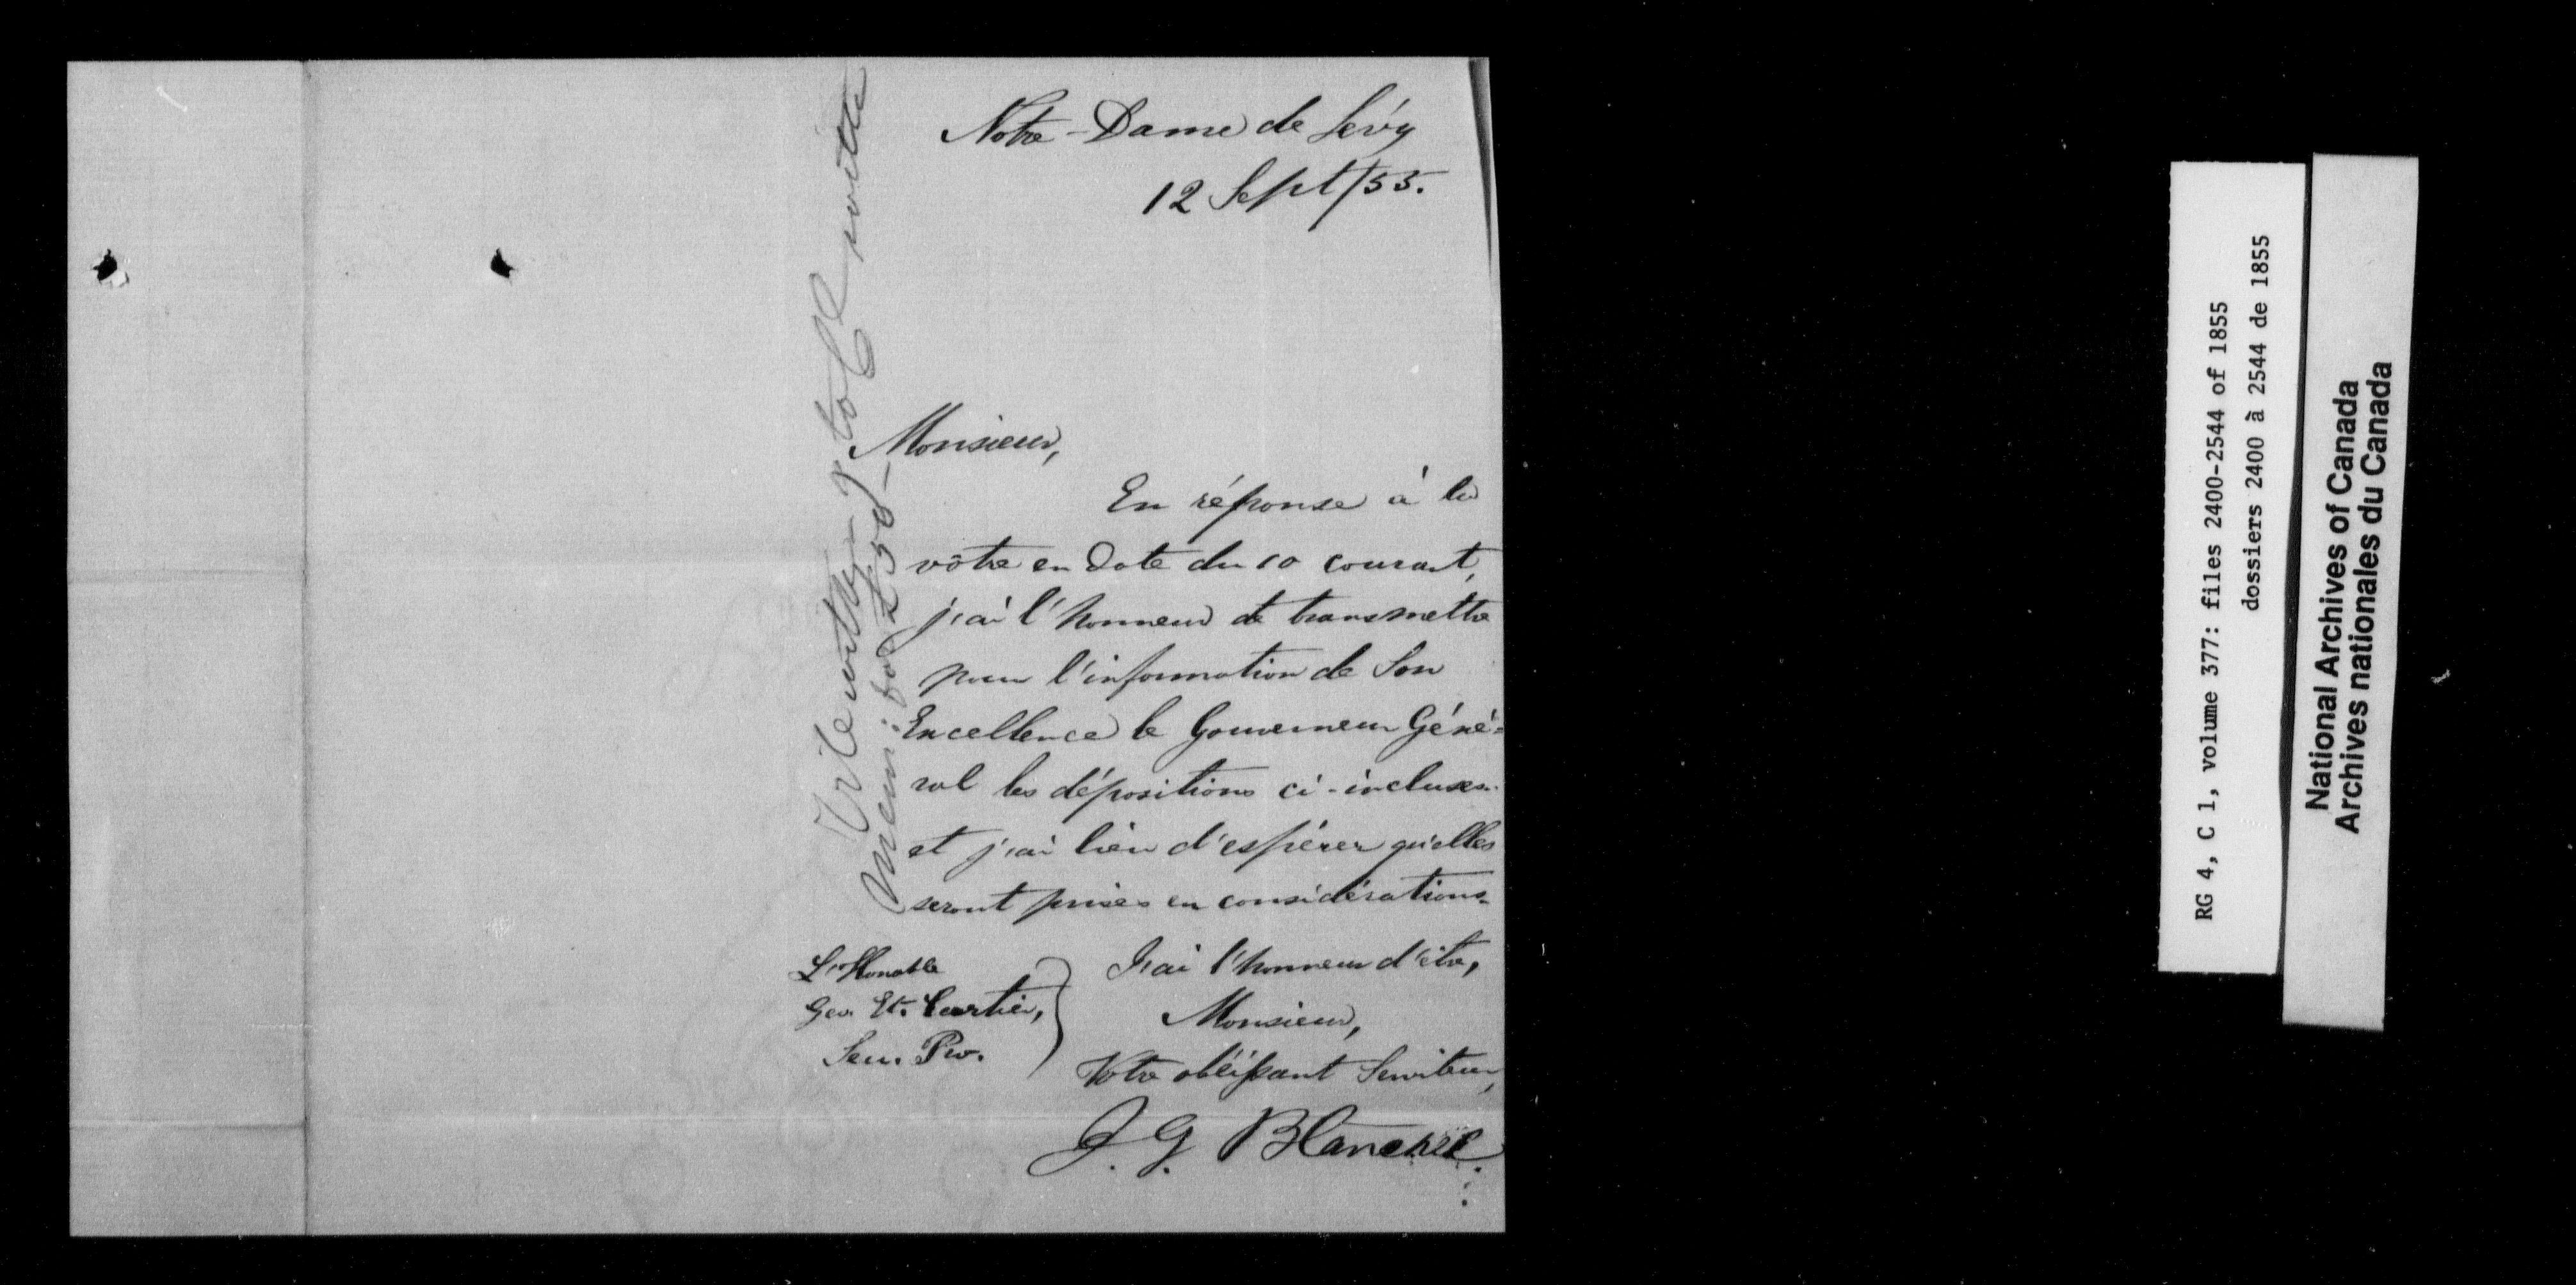 Notre-Dame de Lévy
12 Sept/55.
Monsieur,
En réponse à la
vôtre en date du 10 courant,
j'ai l'honneur de transmettre
pour l'information de Son
Excellence le Gouverneur Géné=
ral les dépositions ci-incluses
et j'ai lieu d'espérer qu'elles
seront prises en considérations.
J'ai l'honneur d'être,
Monsieur,
Votre obéissant Serviteur,
J. G. Blanchet
L'Honable
Geo. Et. Cartier,
Secr. Pro.
for £50
RG 4, C 1, volume 377: files 2400-2544 of 1855
dossiers 2400 à 2544 de 1855
National Archives of Canada
Archives nationales du Canada